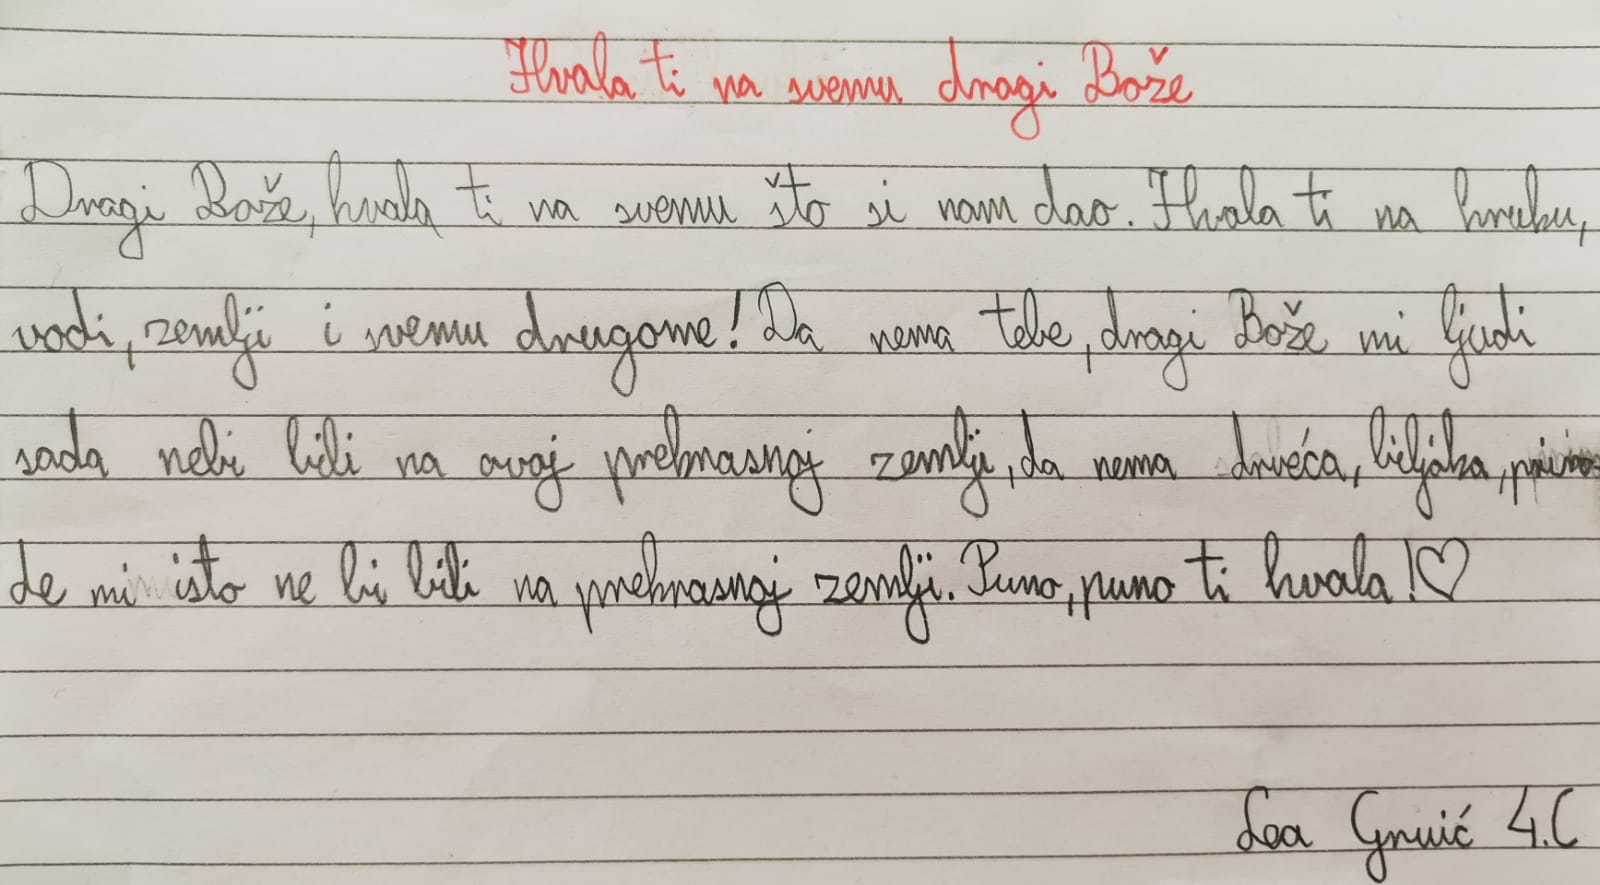 Hvala ti na svemu dragi Bože
Dragi Bože, hvala ti na svemu što si nam dao. Hvala ti na kruhu,
vodi, zemlji i svemu drugome! Da nema tebe, dragi Bože mi ljudi
sada nebi bili na ovoj prekrasnoj zemlji, da nema drveća, biljaka, priro-
de mi isto ne bi bili na prekrasnoj zemlji. Puno, puno ti hvala!♡
Lea Gruić 4.C